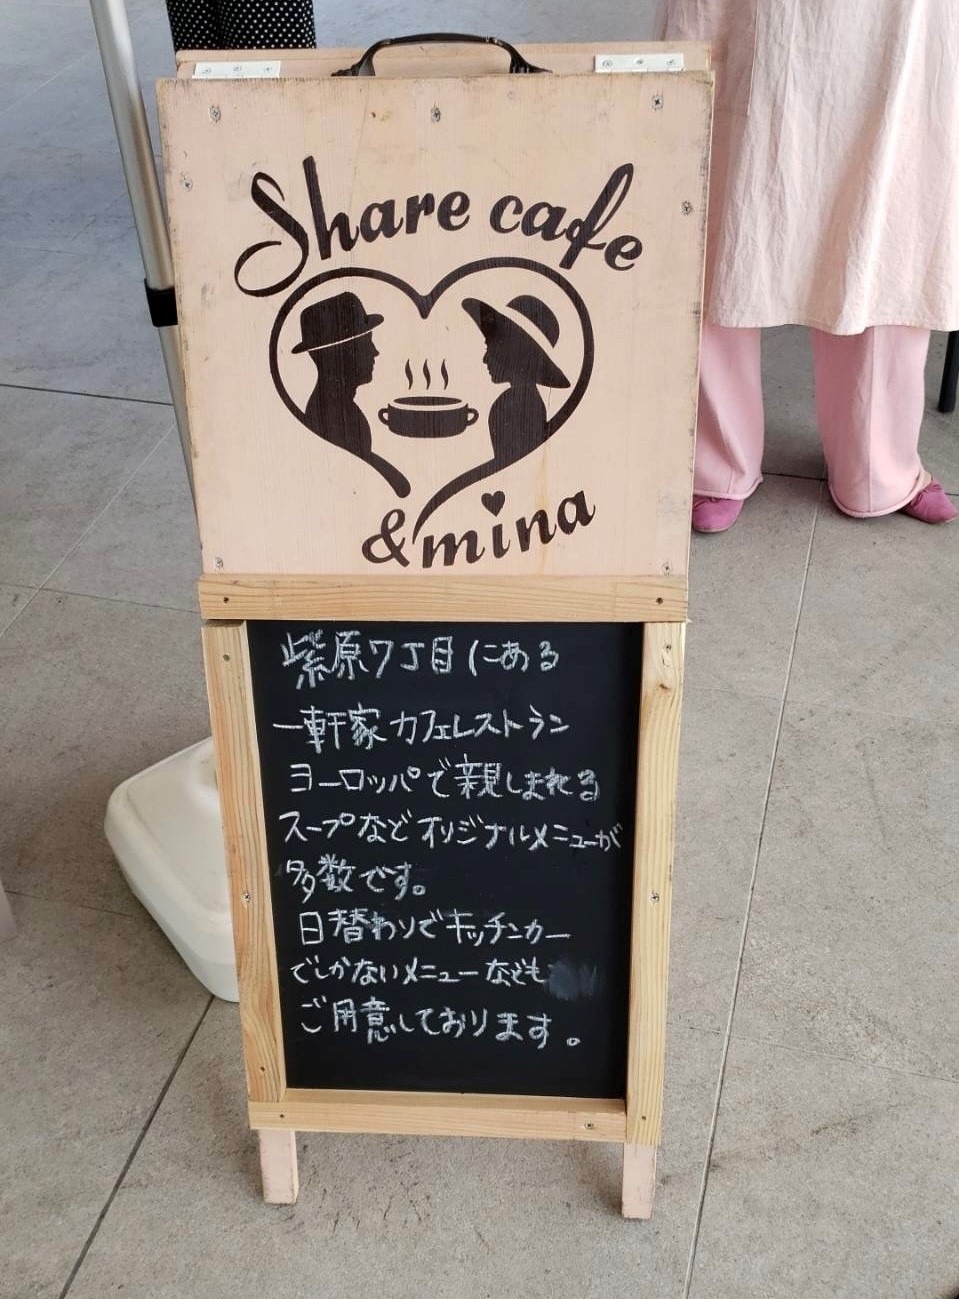 Share cafe
&mina
紫原7丁目にある
一軒家カフェレストラン
ヨーロッパで親しまれる
スープなどオリジナルメニューが
多数です。
日替わりでキッチンカー
でしかないメニューなども
ご用意しております。